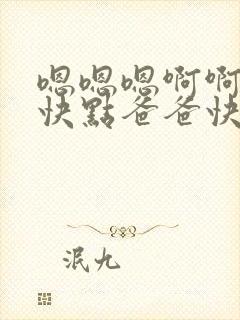 嗯嗯嗯啊啊
快點爸爸快
泯九